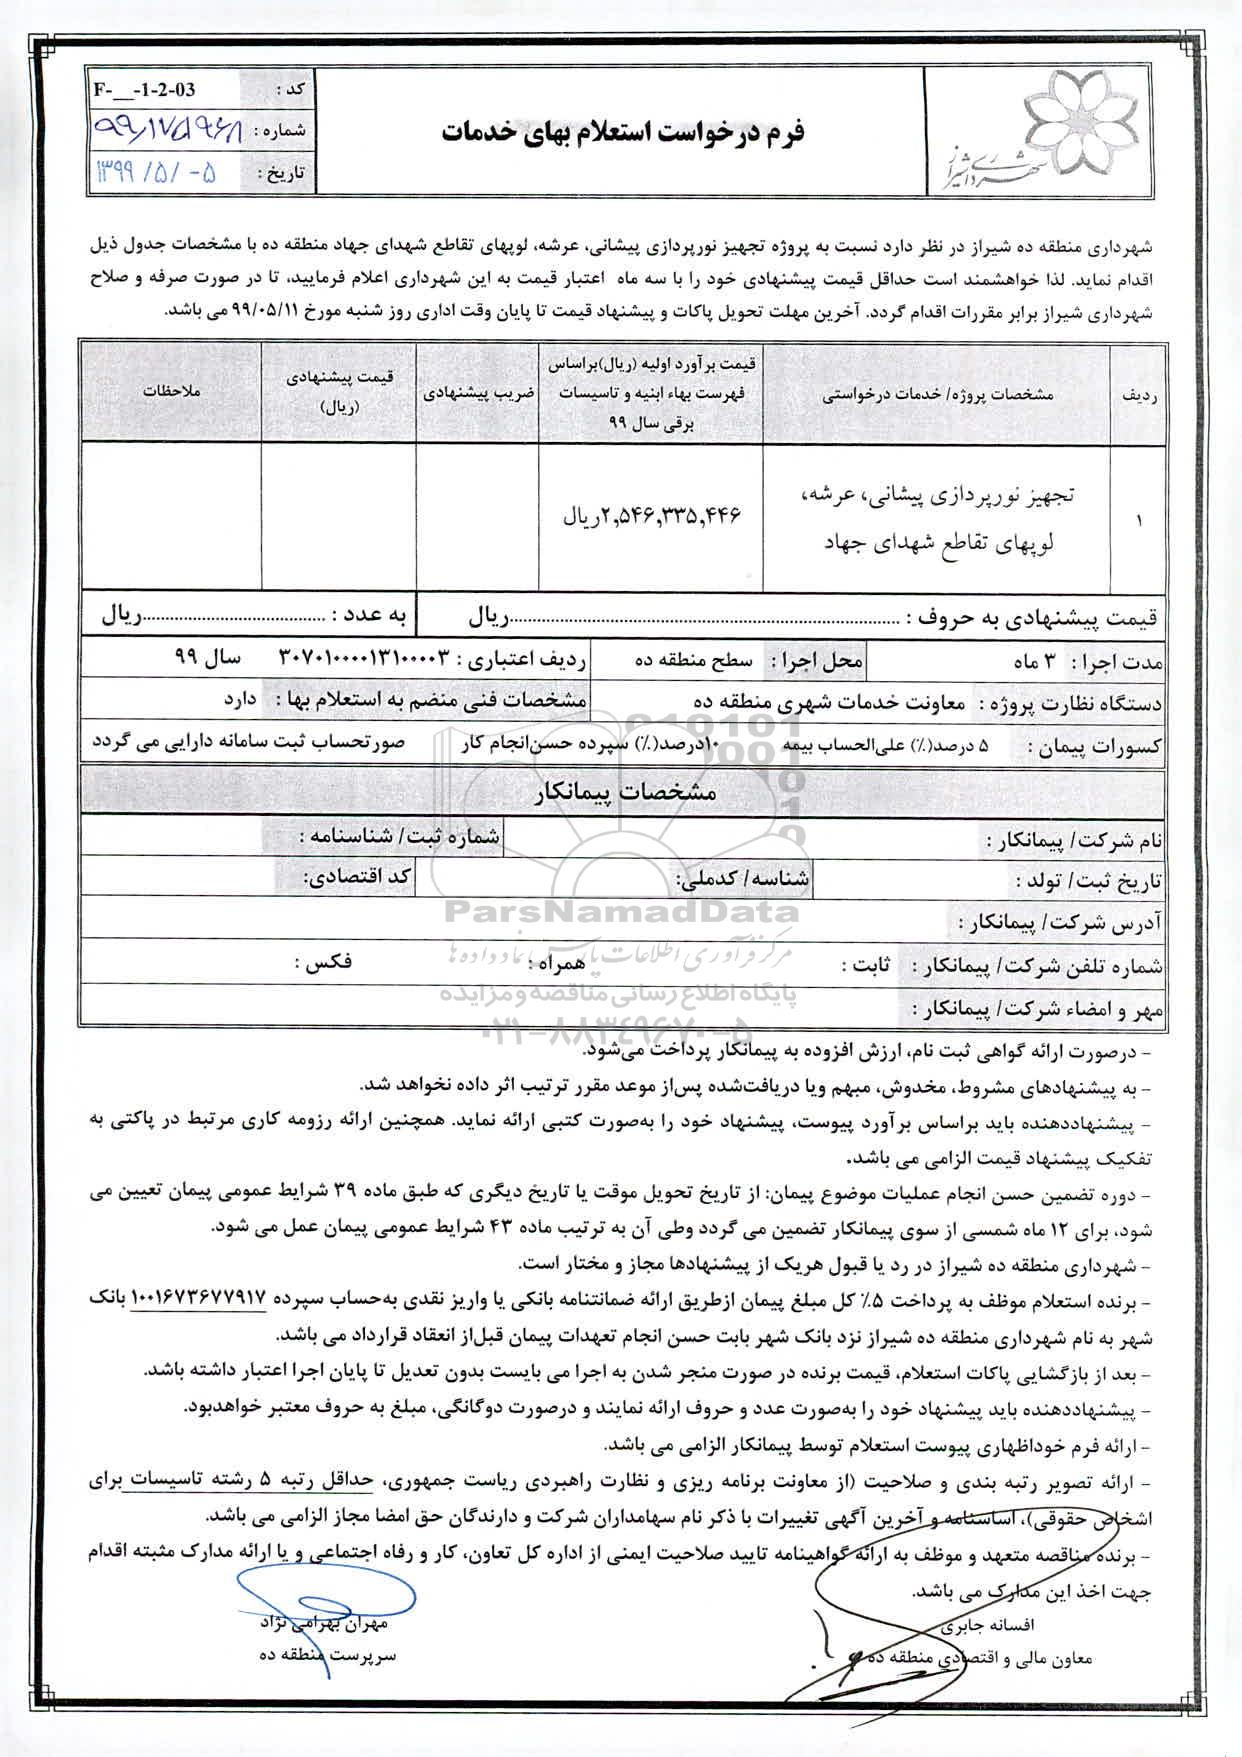 شهرداری شیراز
فرم درخواست استعلام بهای خدمات
کد : F-__-1-2-03
شماره : ۹۹/۱۷۵۹۶۸
تاریخ : ۱۳۹۹/۵/-۵
شهرداری منطقه ده شیراز در نظر دارد نسبت به پروژه تجهیز نورپردازی پیشانی، عرشه، لوپهای تقاطع شهدای جهاد منطقه ده با مشخصات جدول ذیل
اقدام نماید. لذا خواهشمند است حداقل قیمت پیشنهادی خود را با سه ماه اعتبار قیمت به این شهرداری اعلام فرمایید، تا در صورت صرفه و صلاح
شهرداری شیراز برابر مقررات اقدام گردد. آخرین مهلت تحویل پاکات و پیشنهاد قیمت تا پایان وقت اداری روز شنبه مورخ ۹۹/۰۵/۱۱ می باشد.
ردیف
مشخصات پروژه/ خدمات درخواستی
قیمت برآورد اولیه (ریال)براساس
فهرست بهاء ابنیه و تاسیسات
برقی سال ۹۹
ضریب پیشنهادی
قیمت پیشنهادی
(ریال)
ملاحظات
۱
تجهیز نورپردازی پیشانی، عرشه،
لوپهای تقاطع شهدای جهاد
۲,۵۴۶,۳۳۵,۴۴۶ریال
قیمت پیشنهادی به حروف : ............................................................ریال به عدد : ....................................ریال
مدت اجرا : ۳ ماه محل اجرا : سطح منطقه ده ردیف اعتباری : ۳۰۷۰۱۰۰۰۰۱۳۱۰۰۰۰۳ سال ۹۹
دستگاه نظارت پروژه : معاونت خدمات شهری منطقه ده مشخصات فنی منضم به استعلام بها : دارد
کسورات پیمان : ۵ درصد(٪) علی‌الحساب بیمه ۱۰درصد(٪) سپرده حسن‌انجام کار صورتحساب ثبت سامانه دارایی می گردد
مشخصات پیمانکار
نام شرکت/ پیمانکار : شماره ثبت/ شناسنامه :
تاریخ ثبت/ تولد : شناسه/ کدملی: کد اقتصادی:
آدرس شرکت/ پیمانکار :
شماره تلفن شرکت/ پیمانکار : ثابت : همراه : فکس :
مهر و امضاء شرکت/ پیمانکار :
ParsNamadData
مرکز فرآوری اطلاعات پارس نماد داده ها
پایگاه اطلاع رسانی مناقصه و مزایده
۰۲۱-۸۸۳۴۹۶۷۰-۵
- درصورت ارائه گواهی ثبت نام، ارزش افزوده به پیمانکار پرداخت می‌شود.
- به پیشنهادهای مشروط، مخدوش، مبهم ویا دریافت‌شده پس‌از موعد مقرر ترتیب اثر داده نخواهد شد.
- پیشنهاددهنده باید براساس برآورد پیوست، پیشنهاد خود را به‌صورت کتبی ارائه نماید. همچنین ارائه رزومه کاری مرتبط در پاکتی به
تفکیک پیشنهاد قیمت الزامی می باشد.
- دوره تضمین حسن انجام عملیات موضوع پیمان: از تاریخ تحویل موقت یا تاریخ دیگری که طبق ماده ۳۹ شرایط عمومی پیمان تعیین می
شود، برای ۱۲ ماه شمسی از سوی پیمانکار تضمین می گردد وطی آن به ترتیب ماده ۴۳ شرایط عمومی پیمان عمل می شود.
- شهرداری منطقه ده شیراز در رد یا قبول هریک از پیشنهادها مجاز و مختار است.
- برنده استعلام موظف به پرداخت ۵٪ کل مبلغ پیمان ازطریق ارائه ضمانتنامه بانکی یا واریز نقدی به‌حساب سپرده ۱۰۰۱۶۷۳۶۷۷۹۱۷ بانک
شهر به نام شهرداری منطقه ده شیراز نزد بانک شهر بابت حسن انجام تعهدات پیمان قبل‌از انعقاد قرارداد می باشد.
- بعد از بازگشایی پاکات استعلام، قیمت برنده در صورت منجر شدن به اجرا می بایست بدون تعدیل تا پایان اجرا اعتبار داشته باشد.
- پیشنهاددهنده باید پیشنهاد خود را به‌صورت عدد و حروف ارائه نمایند و درصورت دوگانگی، مبلغ به حروف معتبر خواهدبود.
- ارائه فرم خوداظهاری پیوست استعلام توسط پیمانکار الزامی می باشد.
- ارائه تصویر رتبه بندی و صلاحیت (از معاونت برنامه ریزی و نظارت راهبردی ریاست جمهوری، حداقل رتبه ۵ رشته تاسیسات برای
اشخاص حقوقی)، اساسنامه و آخرین آگهی تغییرات با ذکر نام سهامداران شرکت و دارندگان حق امضا مجاز الزامی می باشد.
- برنده مناقصه متعهد و موظف به ارائه گواهینامه تایید صلاحیت ایمنی از اداره کل تعاون، کار و رفاه اجتماعی و یا ارائه مدارک مثبته اقدام
جهت اخذ این مدارک می باشد.
افسانه جابری
معاون مالی و اقتصادی منطقه ده
مهران بهرامی نژاد
سرپرست منطقه ده